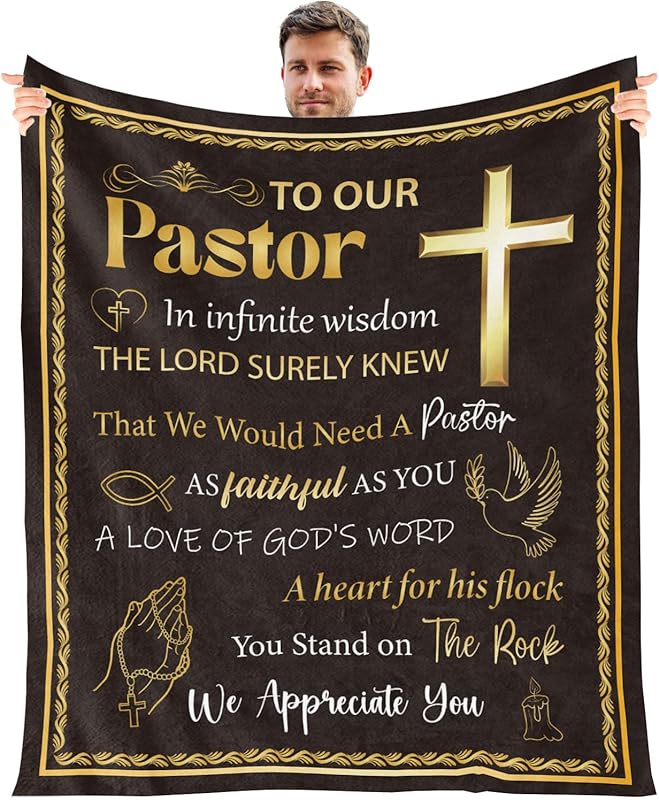 TO OUR
Pastor
In infinite wisdom
THE LORD SURELY KNEW
That We Would Need A Pastor
AS faithful AS YOU
A LOVE OF GOD'S WORD
A heart for his flock
You Stand on The Rock
We Appreciate You